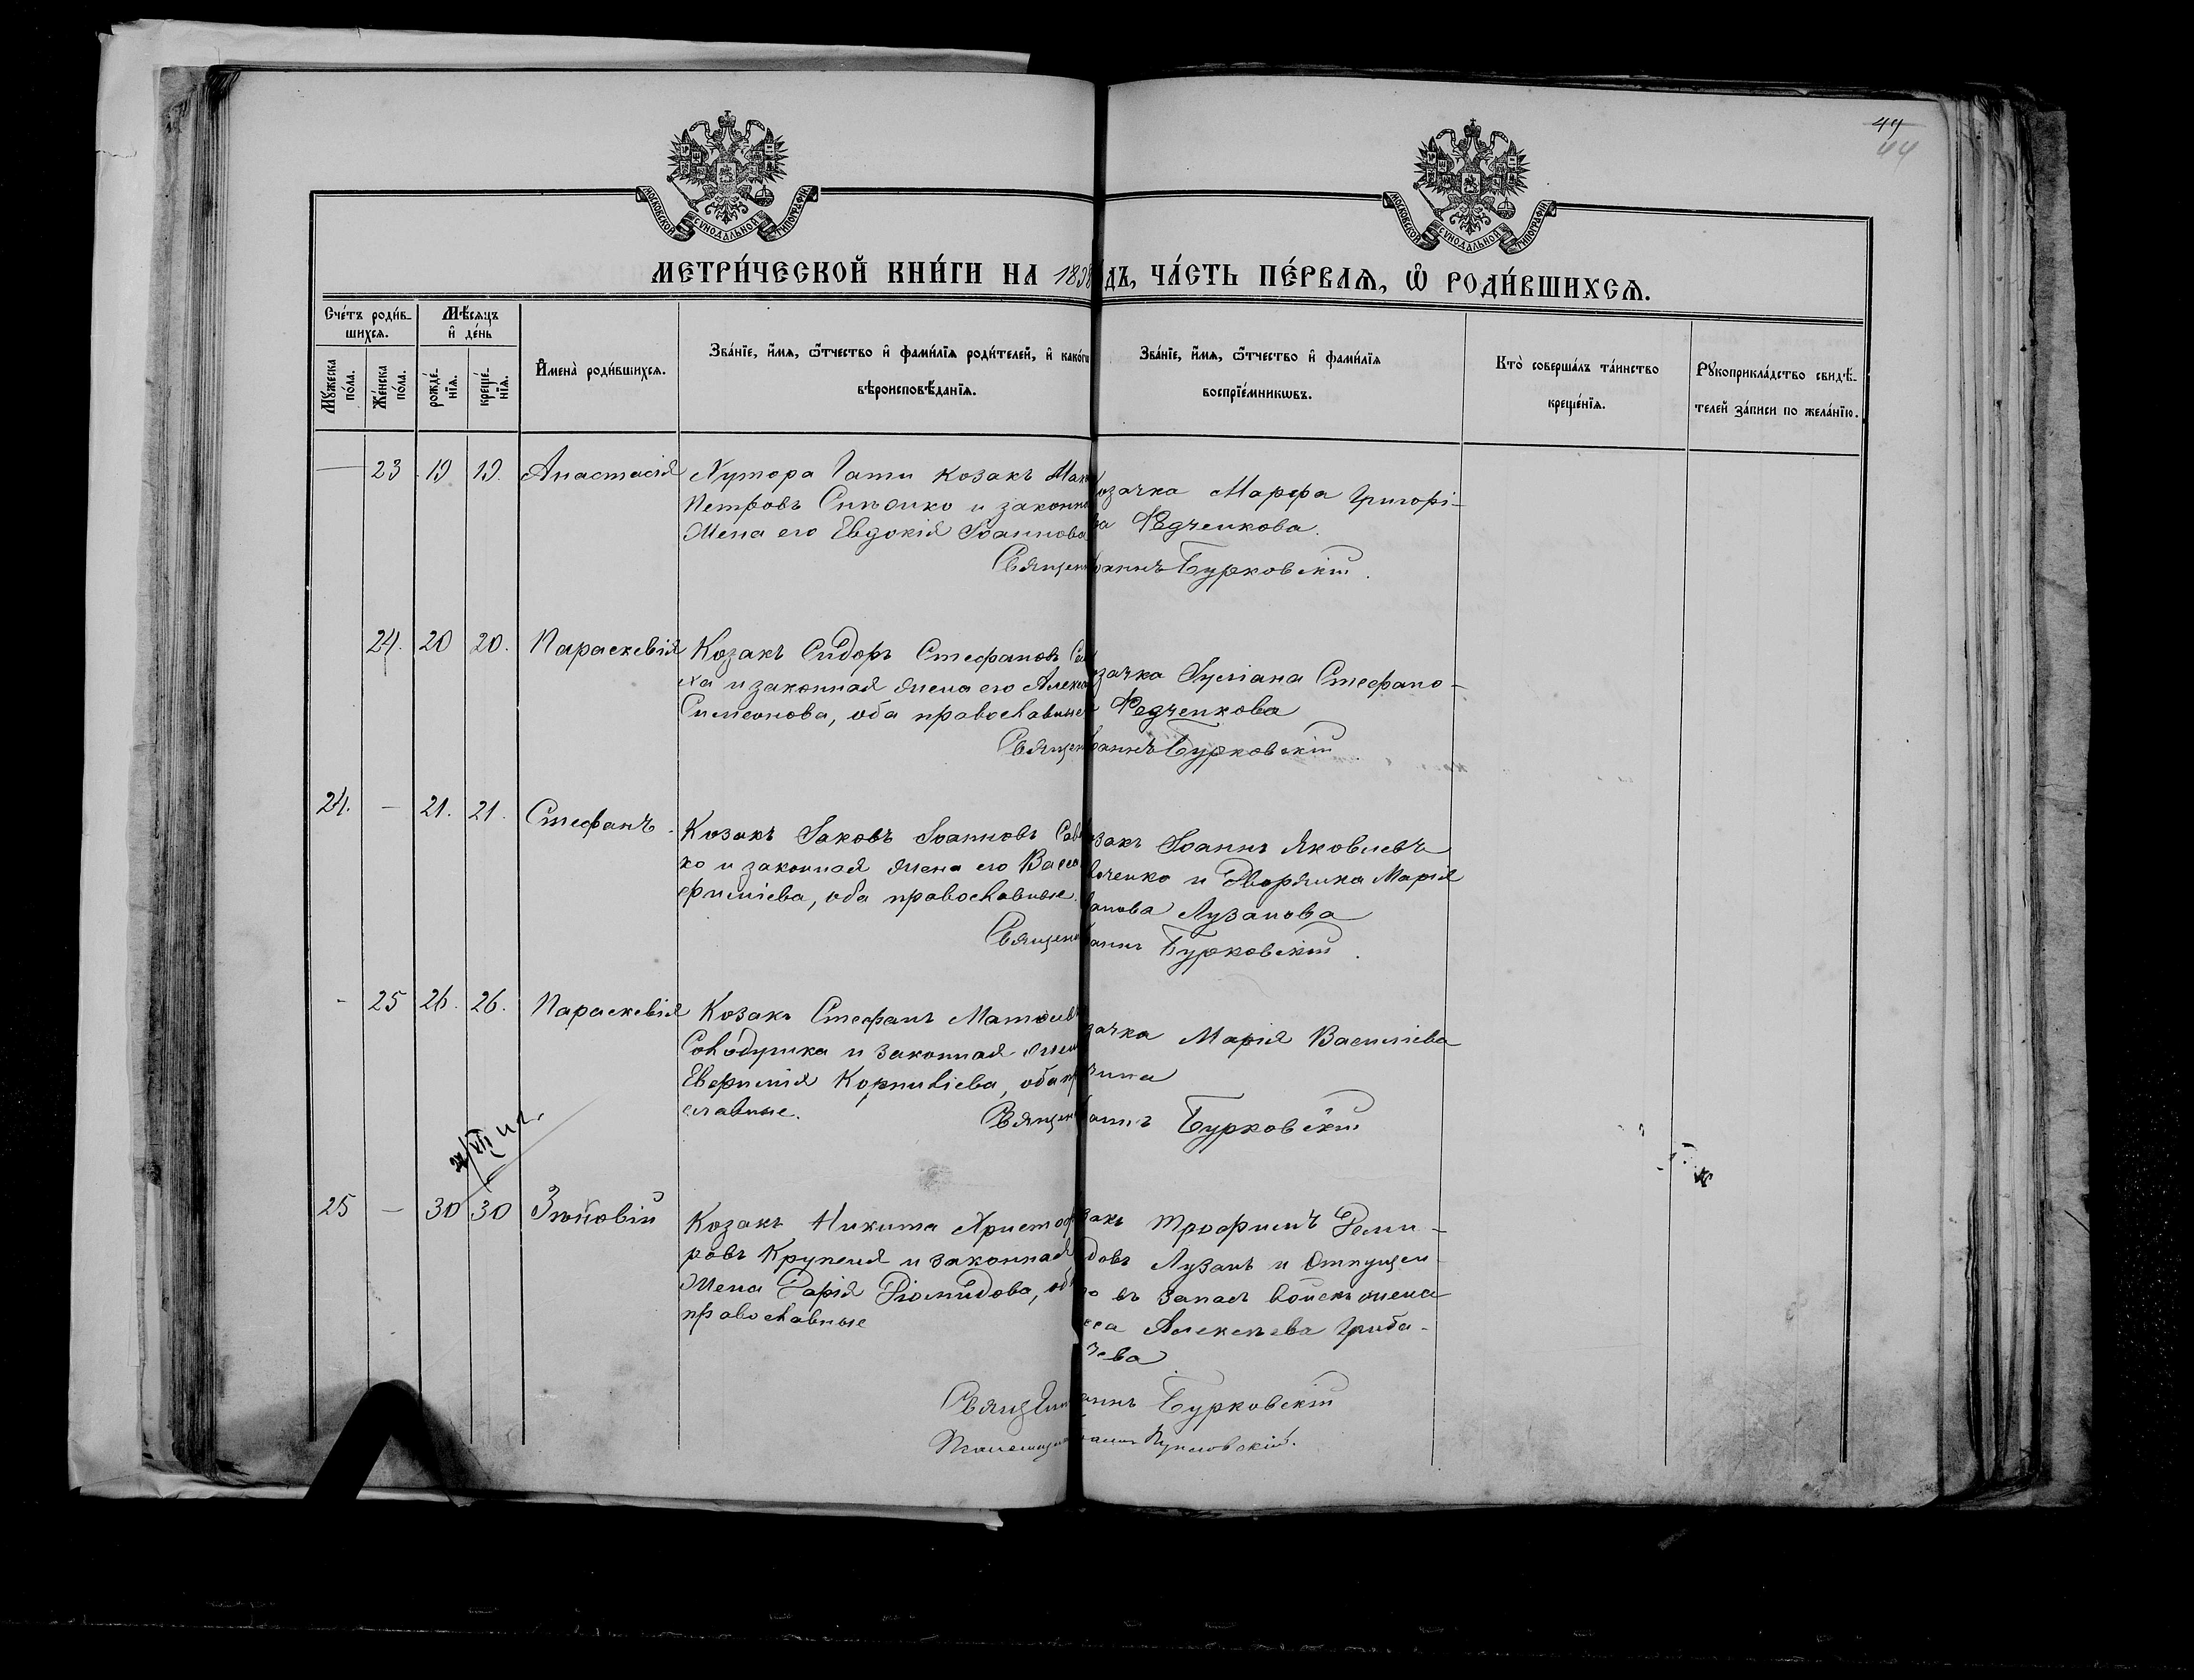 44
44
МОСКОВСКОЙ СѴНОДАЛЬНОЙ ТИПОГРАФІИ
МОСКОВСКОЙ СѴНОДАЛЬНОЙ ТИПОГРАФІИ
МЕТРИ́ЧЕСКОЙ КНИ́ГИ НА 1898 ДЪ, ЧА́СТЬ ПЕ́РВАѦ, Ѡ҆ РОДИ́ВШИХСѦ.
Сче́тъ роди́в-
шихсѧ.
Мѣ́сѧцъ
и҆ де́нь
Мꙋ́жеска
по́ла.
Же́нска
по́ла.
рожде́-
нїѧ.
креще́-
нїѧ.
И҆мена̀ роди́вшихсѧ.
Зва́нїе, и҆́мѧ, ѻ҆́тчество и҆ фами́лїѧ роди́телей, и҆ како́гѡ
вѣроисповѣ́данїѧ.
Зва́нїе, и҆́мѧ, ѻ҆́тчество и҆ фами́лїѧ
воспрїе́мникѡвъ.
Кто̀ соверша́лъ та́инство
креще́нїѧ.
Рꙋкоприкла́дство свидѣ́-
телей за́писи по жела́нїю.
— 23 19 19. Анастасія
Хутора Гати козакъ
Петровъ и
Жена его Евдокія Іоаннова
озачка Марфа Григорі-
ва Федченкова.
Священ аннъ Бурковскій.
24. 20 20. Параскевія
Козакъ Сидоръ Стефановъ
ха и законная жена его
Симеонова, оба православные
зачка Іуліана Стефано-
Федченкова
Священ аннъ Бурковскій
24. — 21. 21. Стефанъ
Козакъ Іаковъ Іоанновъ Сав
ко и законная жена его
фиміева, оба православные.
закъ Іоаннъ Яковлевъ
ченко и Дворянка Марія
анова Лузанова
Священ аннъ Бурковскій.
- 25 26. 26. Параскевія
Козакъ Стефанъ
и законная жен
Евфимія Корниліева, оба пр
славные.
зачка Марія Василіева
Священ аннъ Бурковскій
25 — 30 30 Зиновій
Козакъ Никита Христоф
ровъ Крупеня и законная
Жена Дарія Діомидова, об
православные
закъ Трофимъ Деми-
довъ Лузанъ и Отпущен-
го въ запасъ войскъ жена
Алексѣева Гриба-
чева
Священ аннъ Бурковскій
Псаломщи